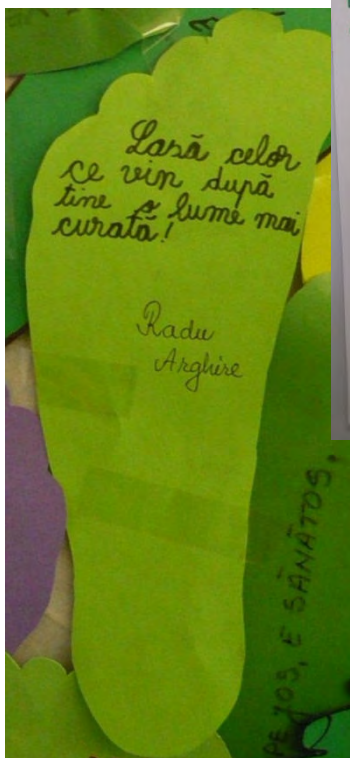 Lasă celor
ce vin după
tine o lume mai
curată!
Radu
Arghire
PE JOS, E SĂNĂTOS,